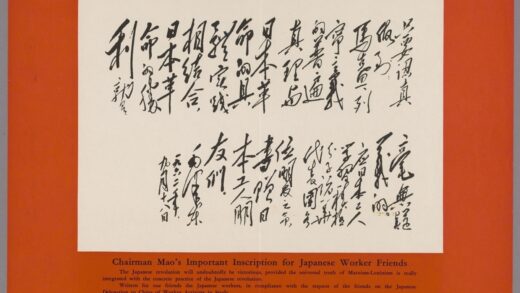 只要認真
做到
馬克思列
寧主義
的普遍
真理与
日本革
命的具
體實踐
相結合
日本革
命的勝
利
就是
毫無疑
義的
應日本工人
學習積極
分子訪華
代表團各
位朋友之命
書贈日
本工人朋
友們
毛澤東
一九六二年
九月十八日
Chairman Mao's Important Inscription for Japanese Worker Friends
The Japanese revolution will undoubtedly be victorious, provided the universal truth of Marxism-Leninism is really
integrated with the concrete practice of the Japanese revolution.
Written for our friends the Japanese workers, in compliance with the request of the friends on the Japanese